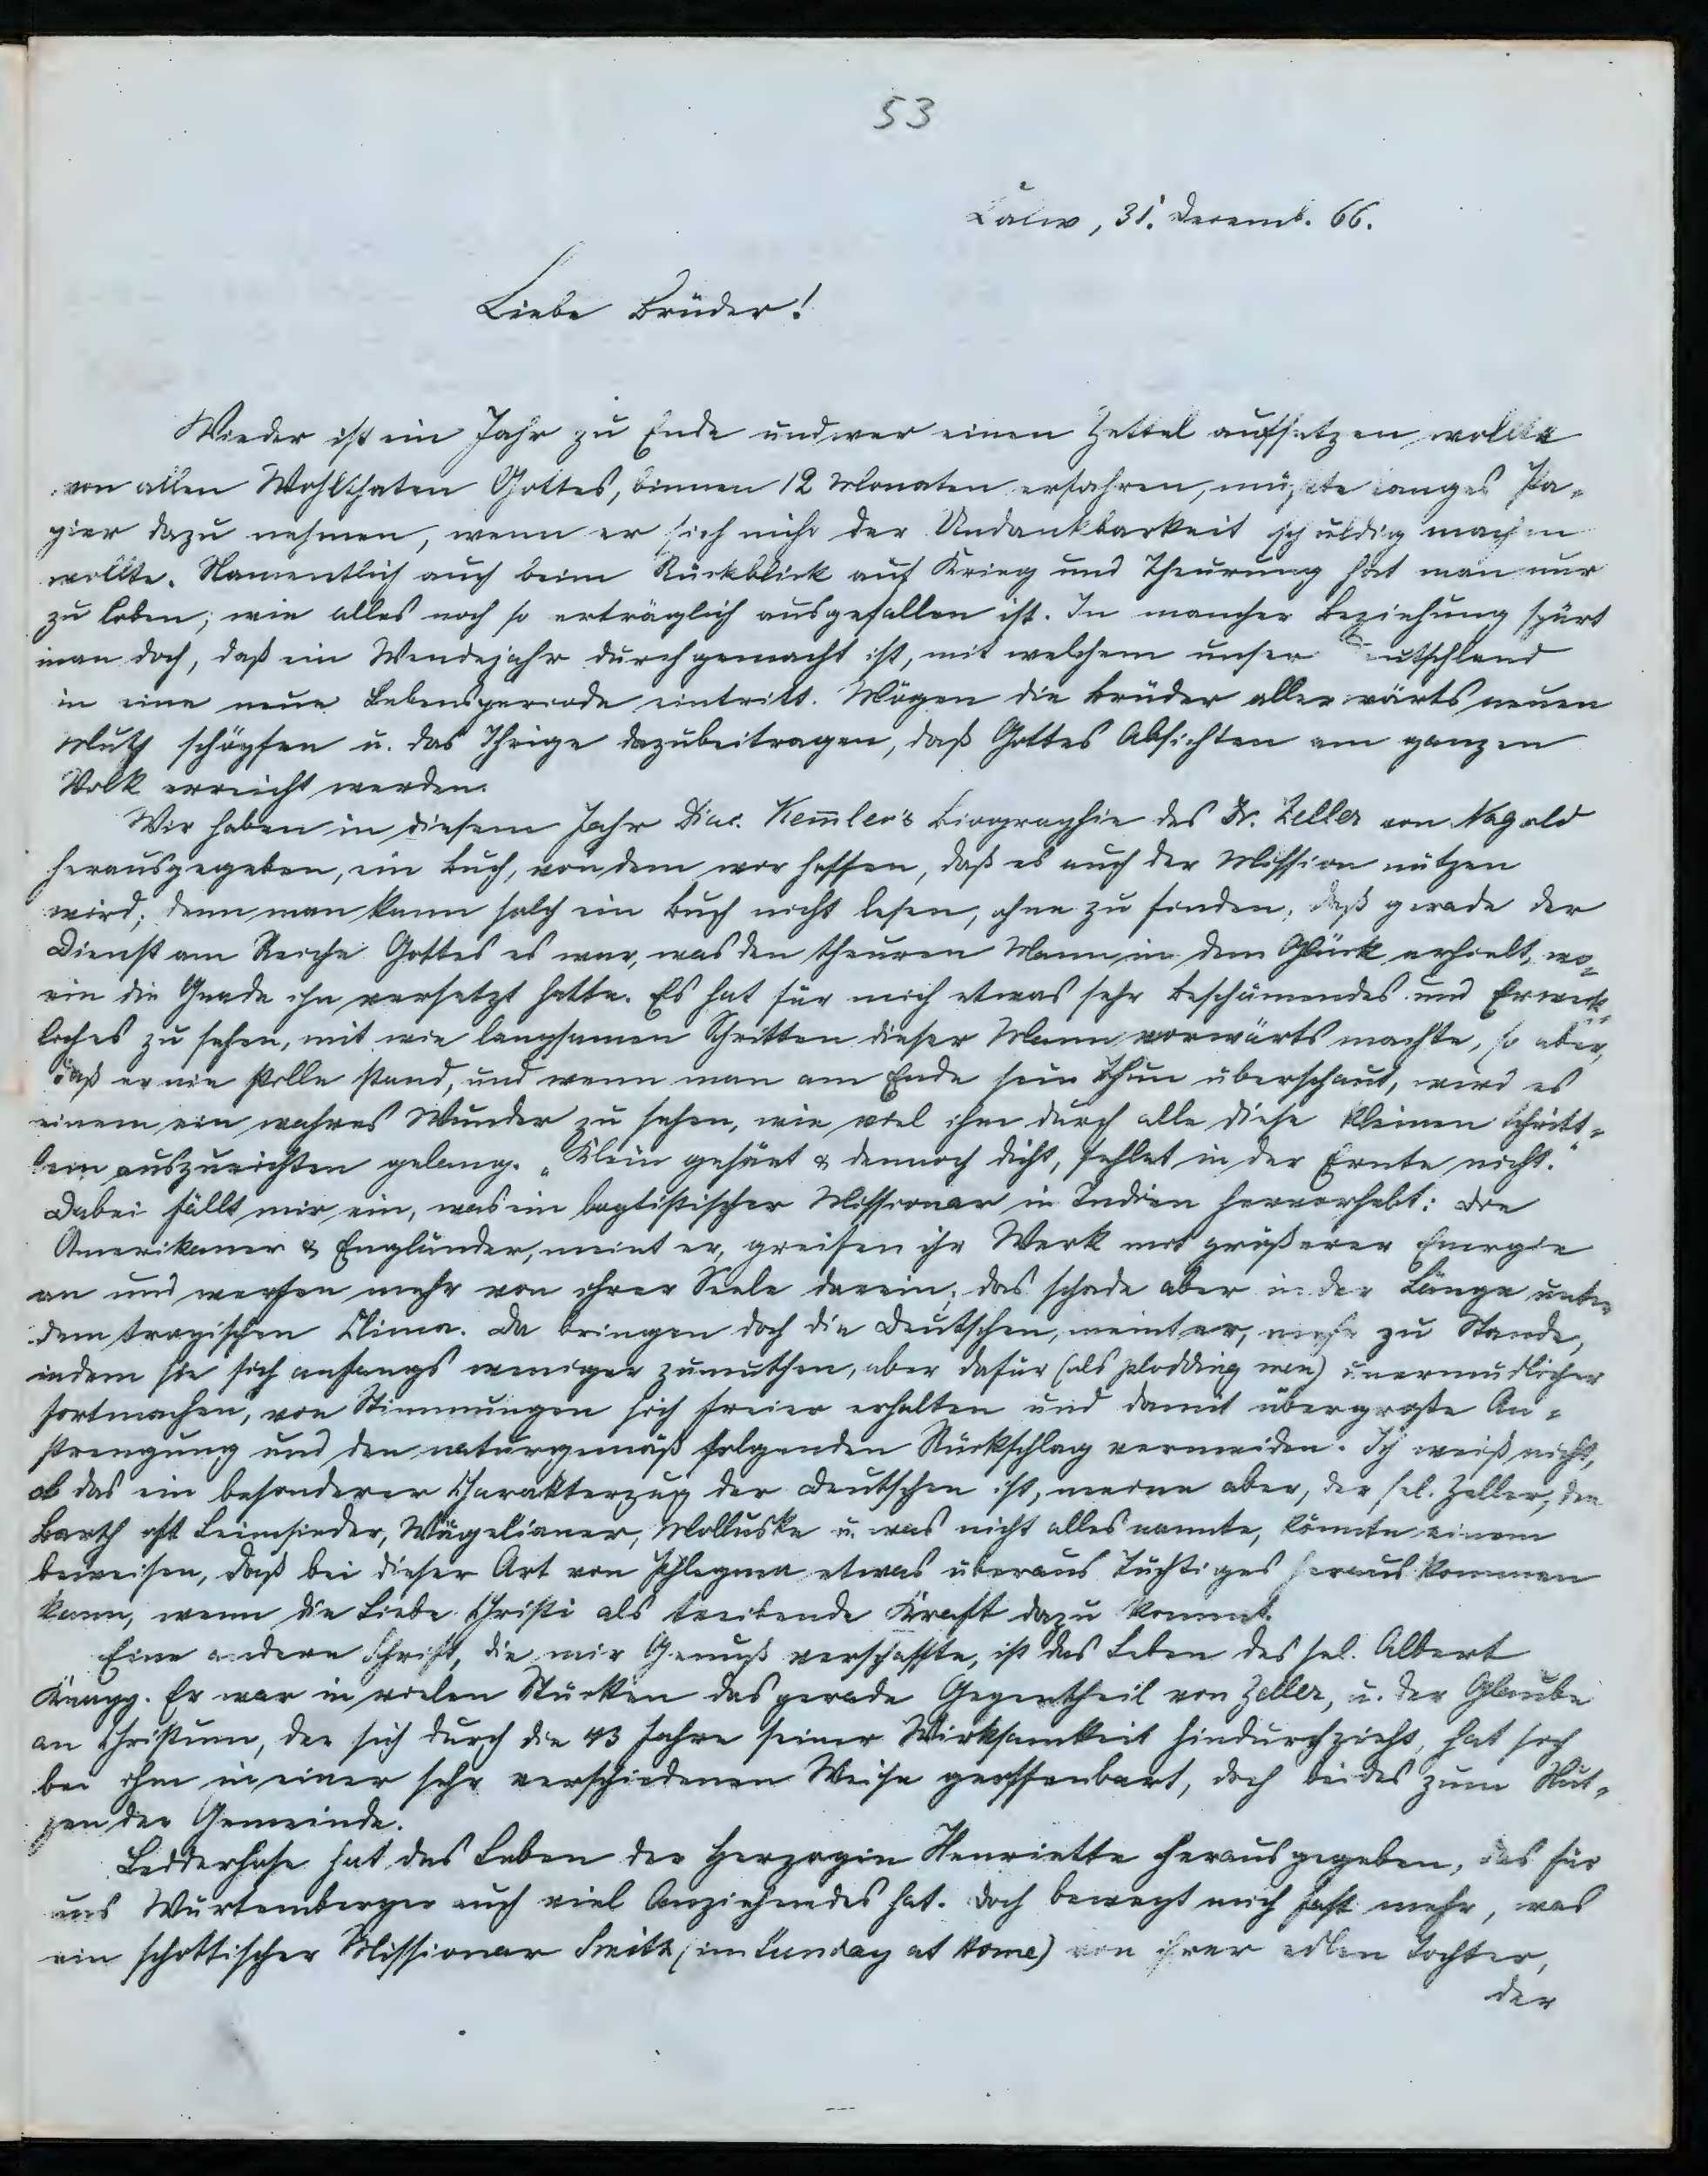 53
Calw, 31. Decemb. 66.
Liebe Brüder!
Wieder ist ein Jahr zu Ende und wer einen Zettel aufsetzen wollte
von allen Wohlthaten Gottes, binnen 12 Monaten erfahren, müßte langes Pa-
pier dazu nehmen, wenn er sich nicht der Undankbarkeit schuldig machen
wollte. Namentlich auch beim Rückblick auf Krieg und Theurung hat man nur
zu loben, wie alles noch so erträglich ausgefallen ist. In mancher Beziehung spürt
man doch, daß ein Wendejahr durchgemacht ist, mit welchem unser Deutschland
in eine neue Lebensperiode eintritt. Mögen die Brüder allerwärts neuen
Muth schöpfen u. das Ihrige dazubeitragen, daß Gottes Absichten am ganzen
Volk erreicht werden.
Wir haben in diesem Jahr Diac. Kem̅ler's Biographie des Dr. Zeller von Nagold
herausgegeben, ein Buch, von dem wir hoffen, daß es auch der Mission nützen
wird; denn man kann solch ein Buch nicht lesen, ohne zu finden, daß gerade der
Dienst am Reiche Gottes es war, was den theuren Mann in dem Glück erhielt, wo-
rin die Gnade ihn versetzt hatte. Es hat für mich etwas sehr Beschämendes und Erweck-
liches zu sehen, mit wie langsamen Schritten dieser Mann vorwärts machte, so aber,
daß er nie stille stand, und wenn man am Ende sein Thun überschaut, wird es
einem ein wahres Wunder zu sehen, wie viel ihm durch alle diese kleinen Schritt-
lein auszurichten gelang. „Klein gesäet & dennoch dicht, fehlet in der Ernte nicht."
Dabei fällt mir ein, was ein baptistischer Missionar in Indien hervorhebt: Die
Amerikaner & Engländer, meint er, greifen ihr Werk mit größerer Energie
an und werfen mehr von ihrer Seele darein; das schade aber in der Länge unter
dem tropischen Clima. Da bringen doch die Deutschen, meint er, mehr zu Stande,
indem sie sich anfangs weniger zumuthen, aber dafür (als plodding men) unermüdlicher
fortmachen, von Stimmungen sich freier erhalten und damit übergroße An-
strengung und den naturgemäß folgenden Rückschlag vermeiden. Ich weiß nicht,
ob das ein besonderer Charakterzug der Deutschen ist, meine aber, der sel. Zeller, den
Barth oft Leimsieder, Wägelianer, Molluske u. was nicht alles nannte, könnte einem
beweisen, daß bei dieser Art von Phlegma etwas überaus Tüchtiges herauskommen
kann, wenn die Liebe Christi als treibende Kraft dazu kommt.
Eine andere Schrift, die mir Genuß verschaffte, ist das Leben des sel. Albert
Knapp. Er war in vielen Stücken das gerade Gegentheil von Zeller, u. der Glaube
an Christum, der sich durch die 43 Jahre seiner Wirksamkeit hindurchzieht, hat sich
bei ihm in einer sehr verschiedenen Weise geoffenbart, doch beides zum Nut-
zen der Gemeinde.
Ledderhose hat das Leben der Herzogin Henriette herausgegeben, das für
uns Würtemberger auch viel Anziehendes hat. Doch bewegt mich fast mehr, was
ein schottischer Missionar Smith (im Sunday at Home) von ihrer edlen Tochter,
der